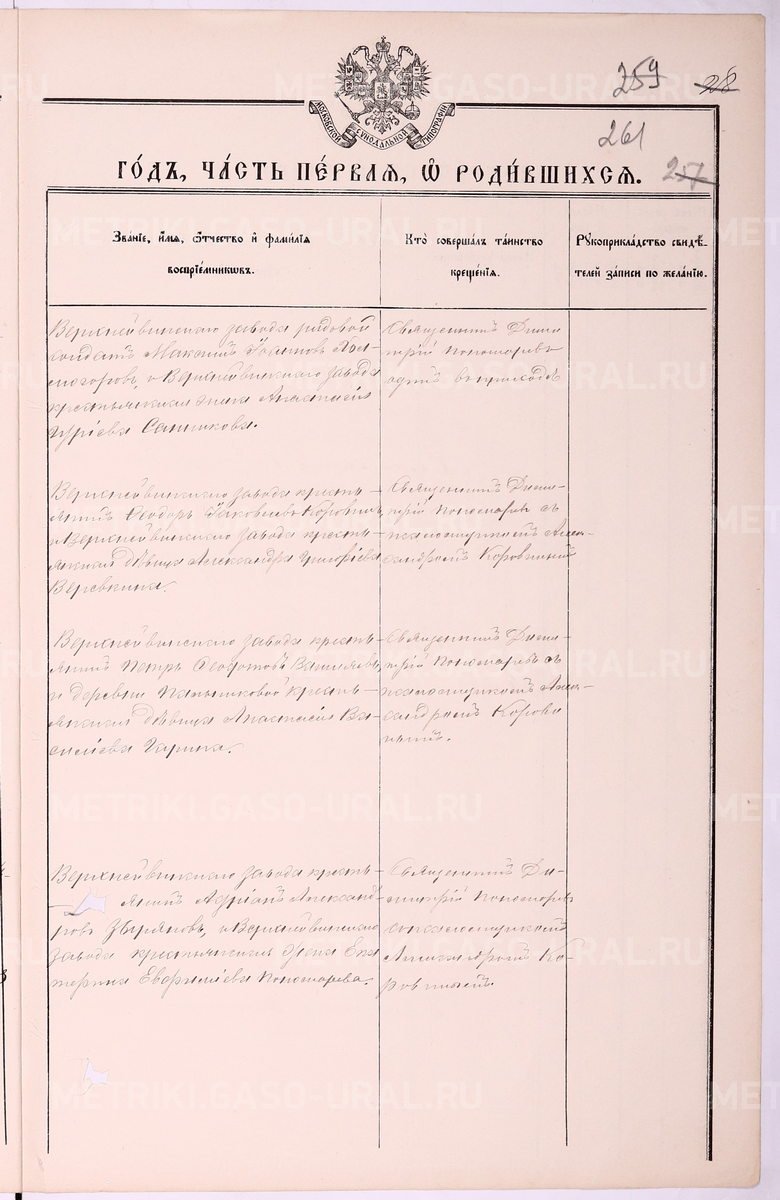 259 28
МОСКОВСКОЙ СѴНОДАЛЬНОЙ ТИПОГРАФІИ
261
ГО́ДЪ, ЧА́СТЬ ПЕ́РВАЯ, Ѡ҆ РОДИ́ВШИХСЯ. 257
Зва́нїе, и҆́мѧ, ѻ҆́тчество и҆ фами́лїѧ
воспрїе́мникѡвъ.
Кто̀ соверша́лъ та́инство
креще́нїѧ.
Рꙋкоприкла́дство свидѣ́-
телей за́писи по жела́нїю.
Верхнейвинскаго завода рядовой
солдатъ Максимъ Іоанновъ
и Верхнейвинскаго завода
крестьянская жена Анастасія
Гуріева Санникова.
Священникъ Дими-
трій Пономаревъ
одинъ въ приходѣ
Верхнейвинскаго завода кресть-
янинъ Ѳеодоръ Іаковлевъ Коровинъ,
и Верхнейвинскаго завода кресть-
янская дѣвица Александра Григоріева
Веревкина.
Священникъ Дими-
трій Пономаревъ съ
псаломщикомъ Алек-
сандромъ Коровинымъ
Верхнейвинскаго завода кресть-
янинъ Петръ
и деревни кресть-
янская дѣвица Анастасія Ва-
силіева
Священникъ Дими-
трій Пономаревъ съ
псаломщикомъ Алек-
сандромъ Корови
нымъ.
Верхнейвинскаго завода кресть-
янинъ Адріанъ Александ
ровъ Звѣряновъ, и Верхнейвинскаго
завода крестьянская жена Ека
терина Евфиміева Пономарева.
Священникъ Ди-
митрій Пономаревъ
съ псаломщикомъ
Александромъ Ко-
ровинымъ.
METRIKI.GASO-URAL.RU